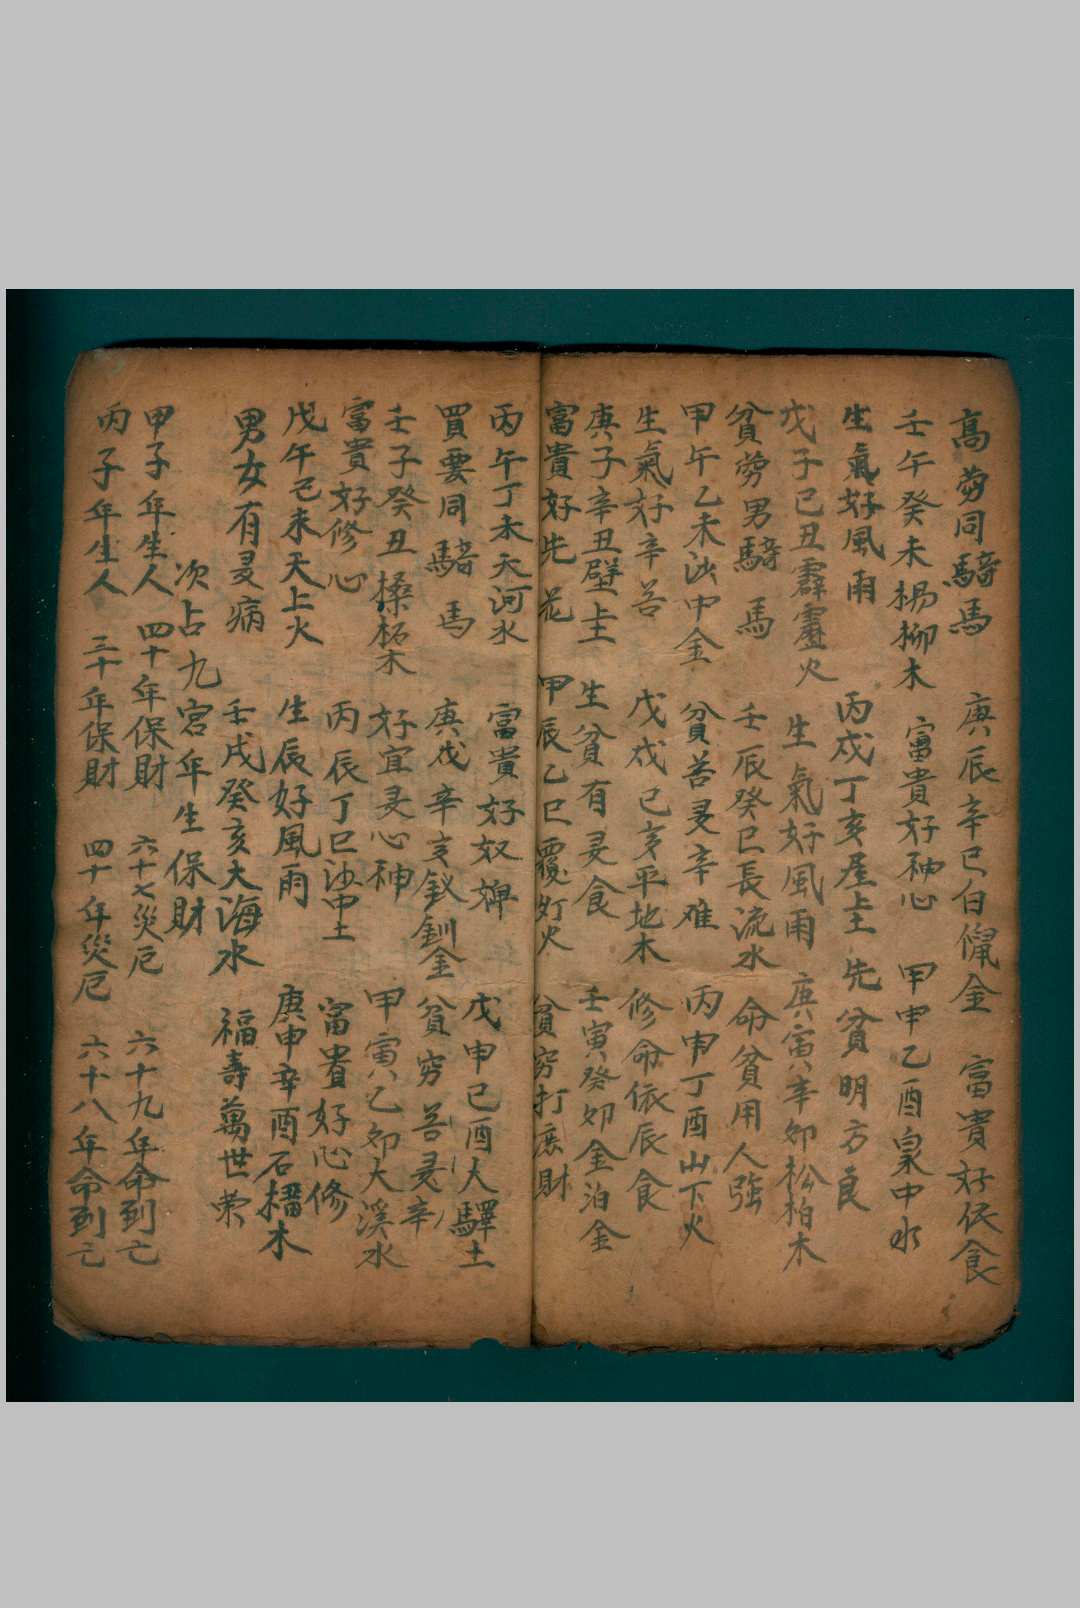 高劳同騎馬　庚辰辛巳白䥯金　富貴好依食
壬午癸未楊柳木　富貴好神心　甲申乙酉泉中水
生氣好風雨　丙戌丁亥屋上土　先貧明方良
戊子己丑霹靂火　生氣好風雨　庚寅辛卯松柏木
貧劳男騎馬　壬辰癸巳長流水　命貧用人強
甲午乙未沙中金　貧苦灵辛难　丙申丁酉山下火
生氣好辛苦　戊戌己亥平地木　修命依辰食
庚子辛丑壁土　生貧有灵食　壬寅癸卯金泊金
富貴好先花　甲辰乙巳覆灯火　貧穷打庶財
丙午丁未天河水　富貴好奴婢　戊申己酉大驛土
買雲同騎馬　庚戌辛亥釵釧金　貧穷苦灵辛
壬子癸丑桑柘木　好宜灵心神　甲寅乙卯大溪水
富貴好修心　丙辰丁巳沙中土　富貴好心修
戊午己未天上火　生辰好風雨　庚申辛酉石榴木
男女有灵病　壬戌癸亥大海水　福壽萬世荣
次占九宮年生保財
甲子年生人　四十年保財　六十七災厄　六十九年命到亡
丙子年生人　三十年保財　四十年災厄　六十八年命到亡